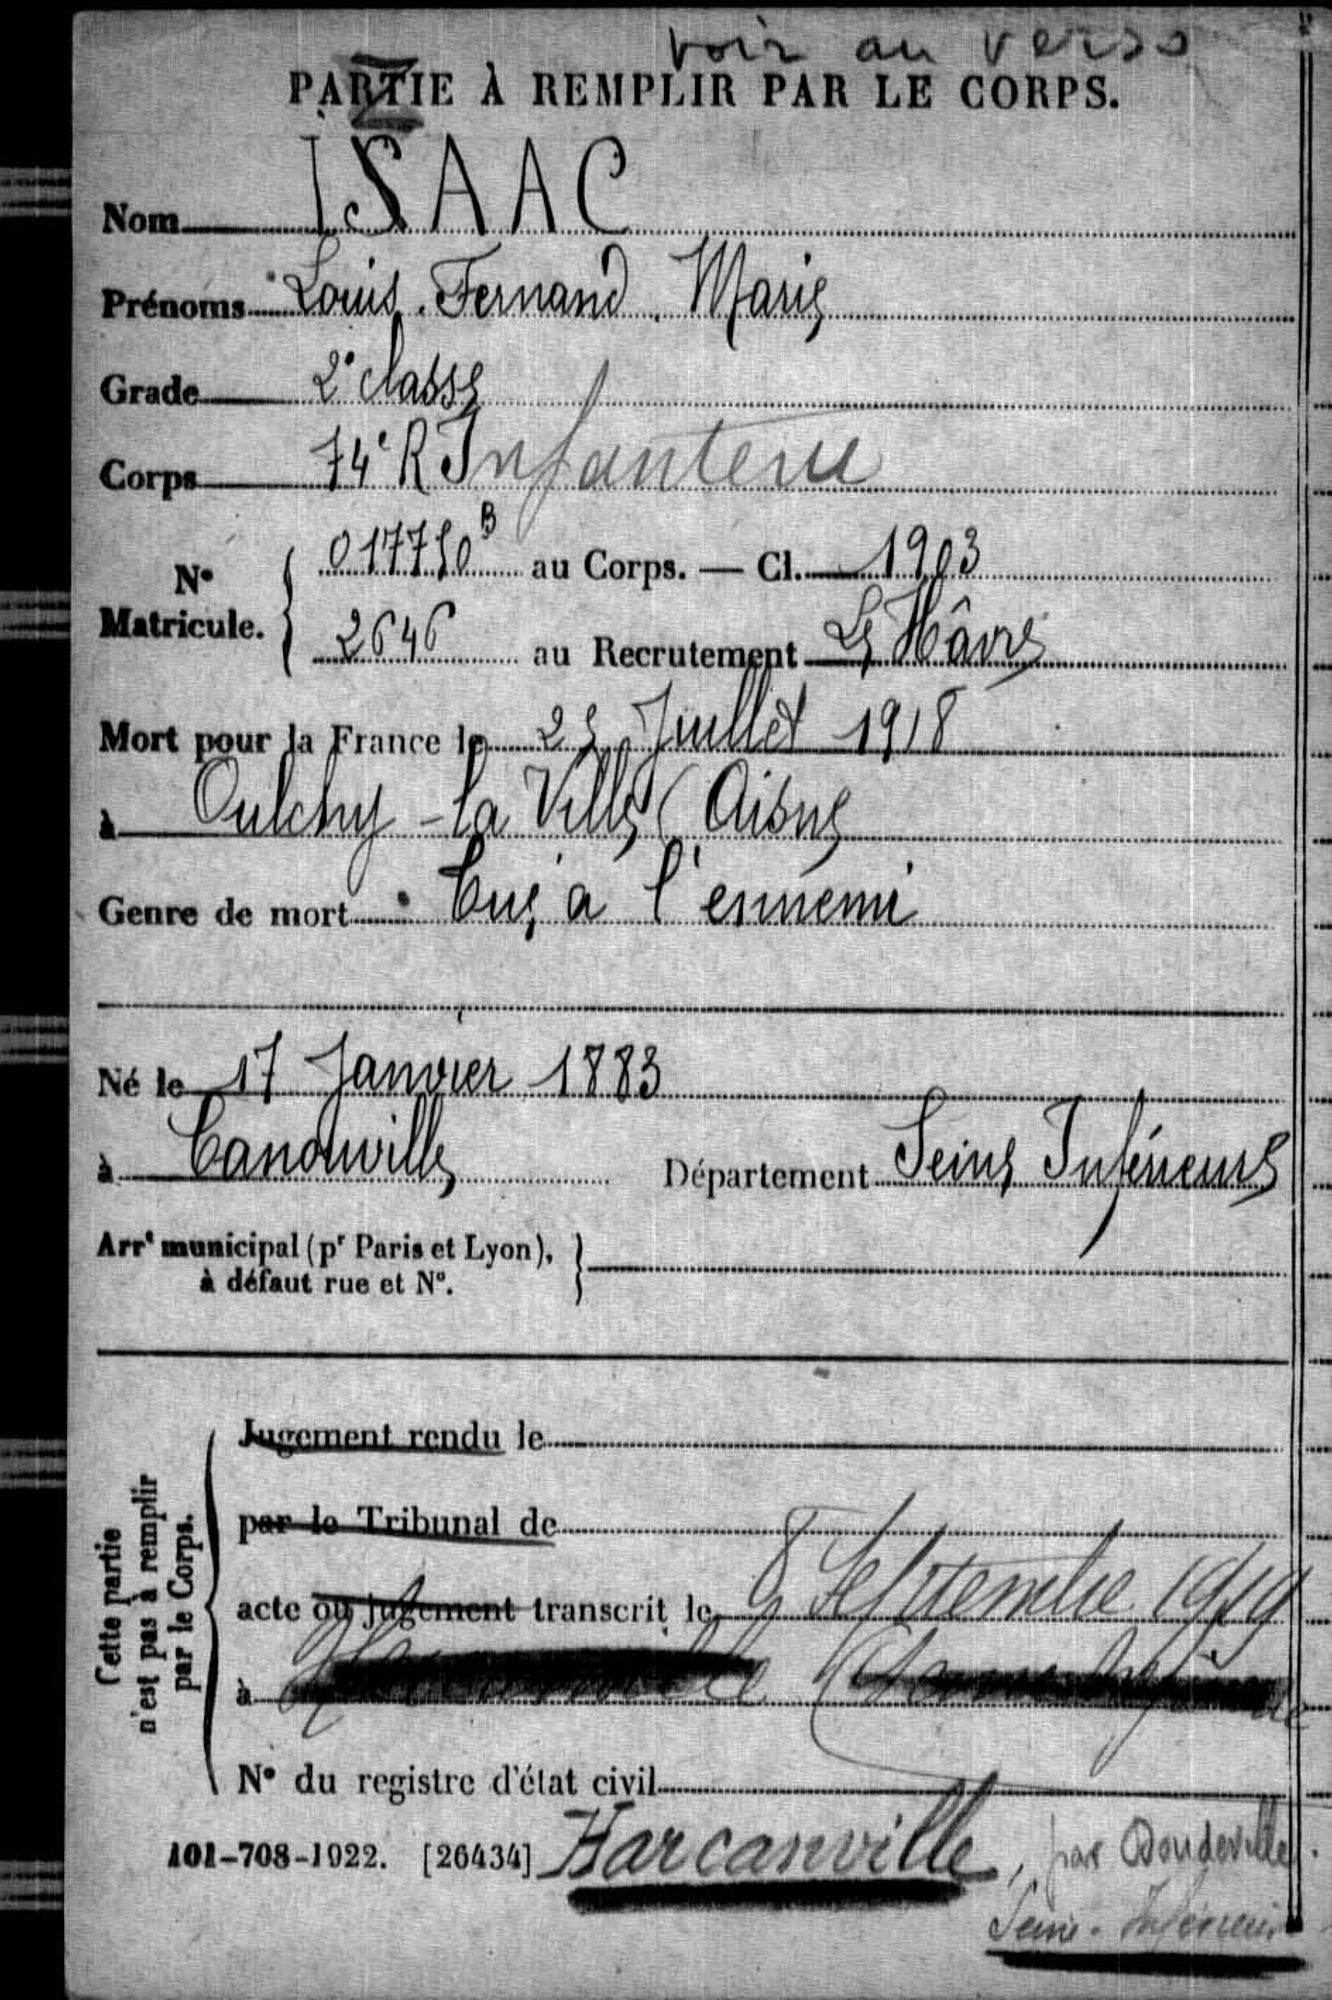 voir au verso
PARTIE À REMPLIR PAR LE CORPS.
Nom ISAAC
Prénoms Louis Fernand Marie
Grade 2e classe
Corps 74e R Infanterie
No Matricule. { 017750 B au Corps. — Cl. 1903
2646 au Recrutement Le Hâvre
Mort pour la France le 25 Juillet 1918
à Oulchy-la Ville (Aisne
Genre de mort Tué à l'ennemi
Né le 17 Janvier 1883
à Canouville Département Seine Inférieure
Arrt municipal (pr Paris et Lyon),
à défaut rue et No.
Cette partie
n'est pas à remplir
par le Corps.
Jugement rendu le
par le Tribunal de
acte ou jugement transcrit le 8 Septembre 1919
à
No du registre d'état civil
101-708-1922. [26434] Harcanville, par Doudeville
Seine-Inférieure